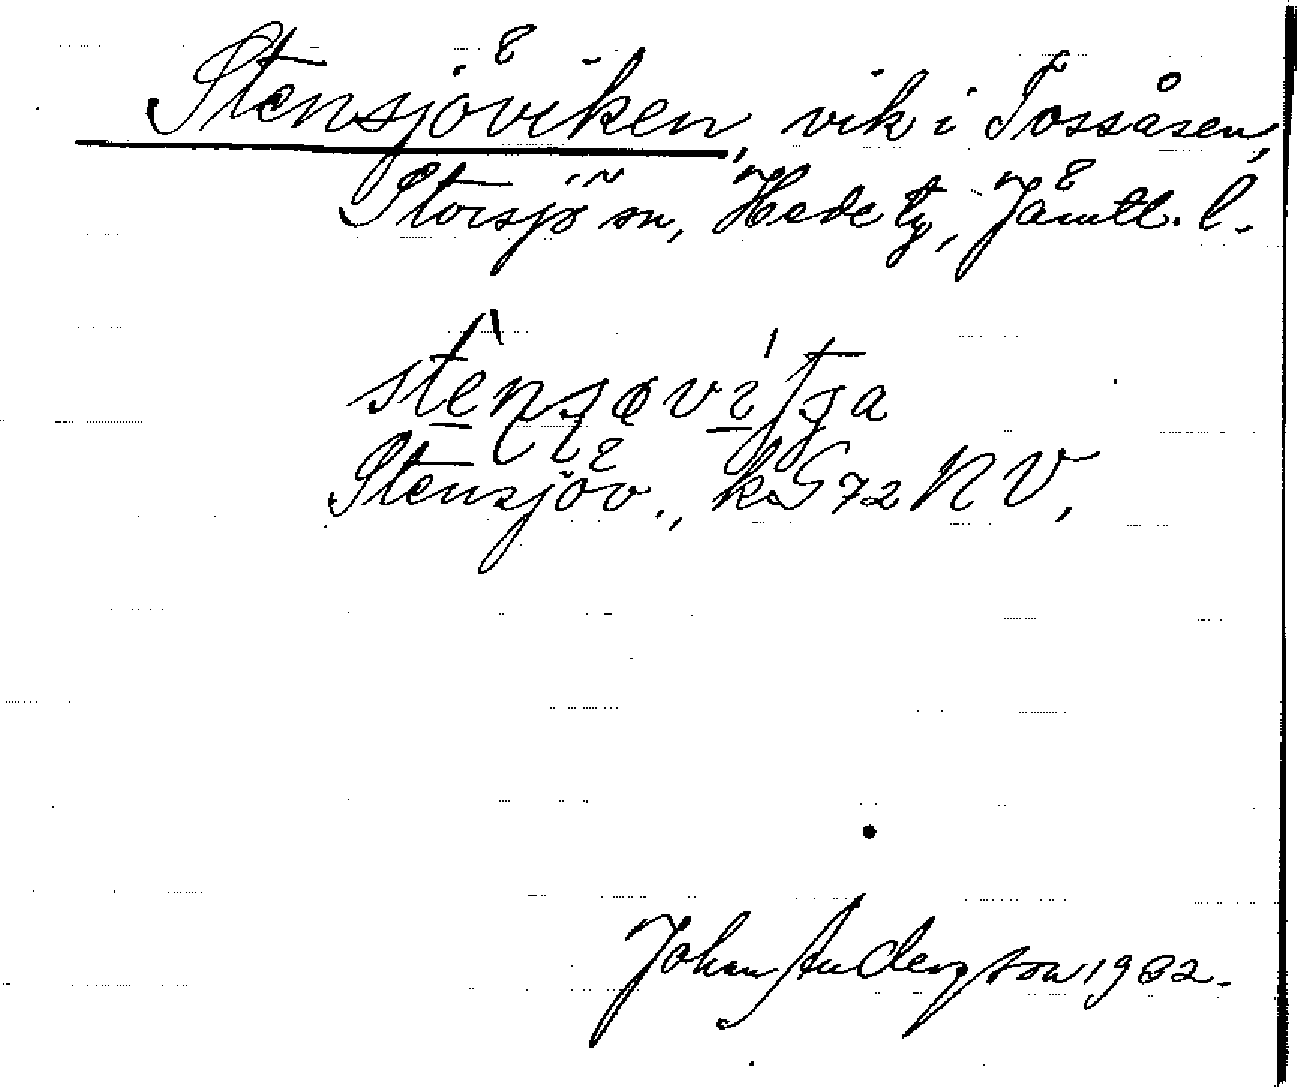 Stensjöviken, vik i Tossåsen,
Storsjö sn, Hede tg, Jämtl. l.
Stensjöv., kS 72 NV,
Johan Andersson 1932.